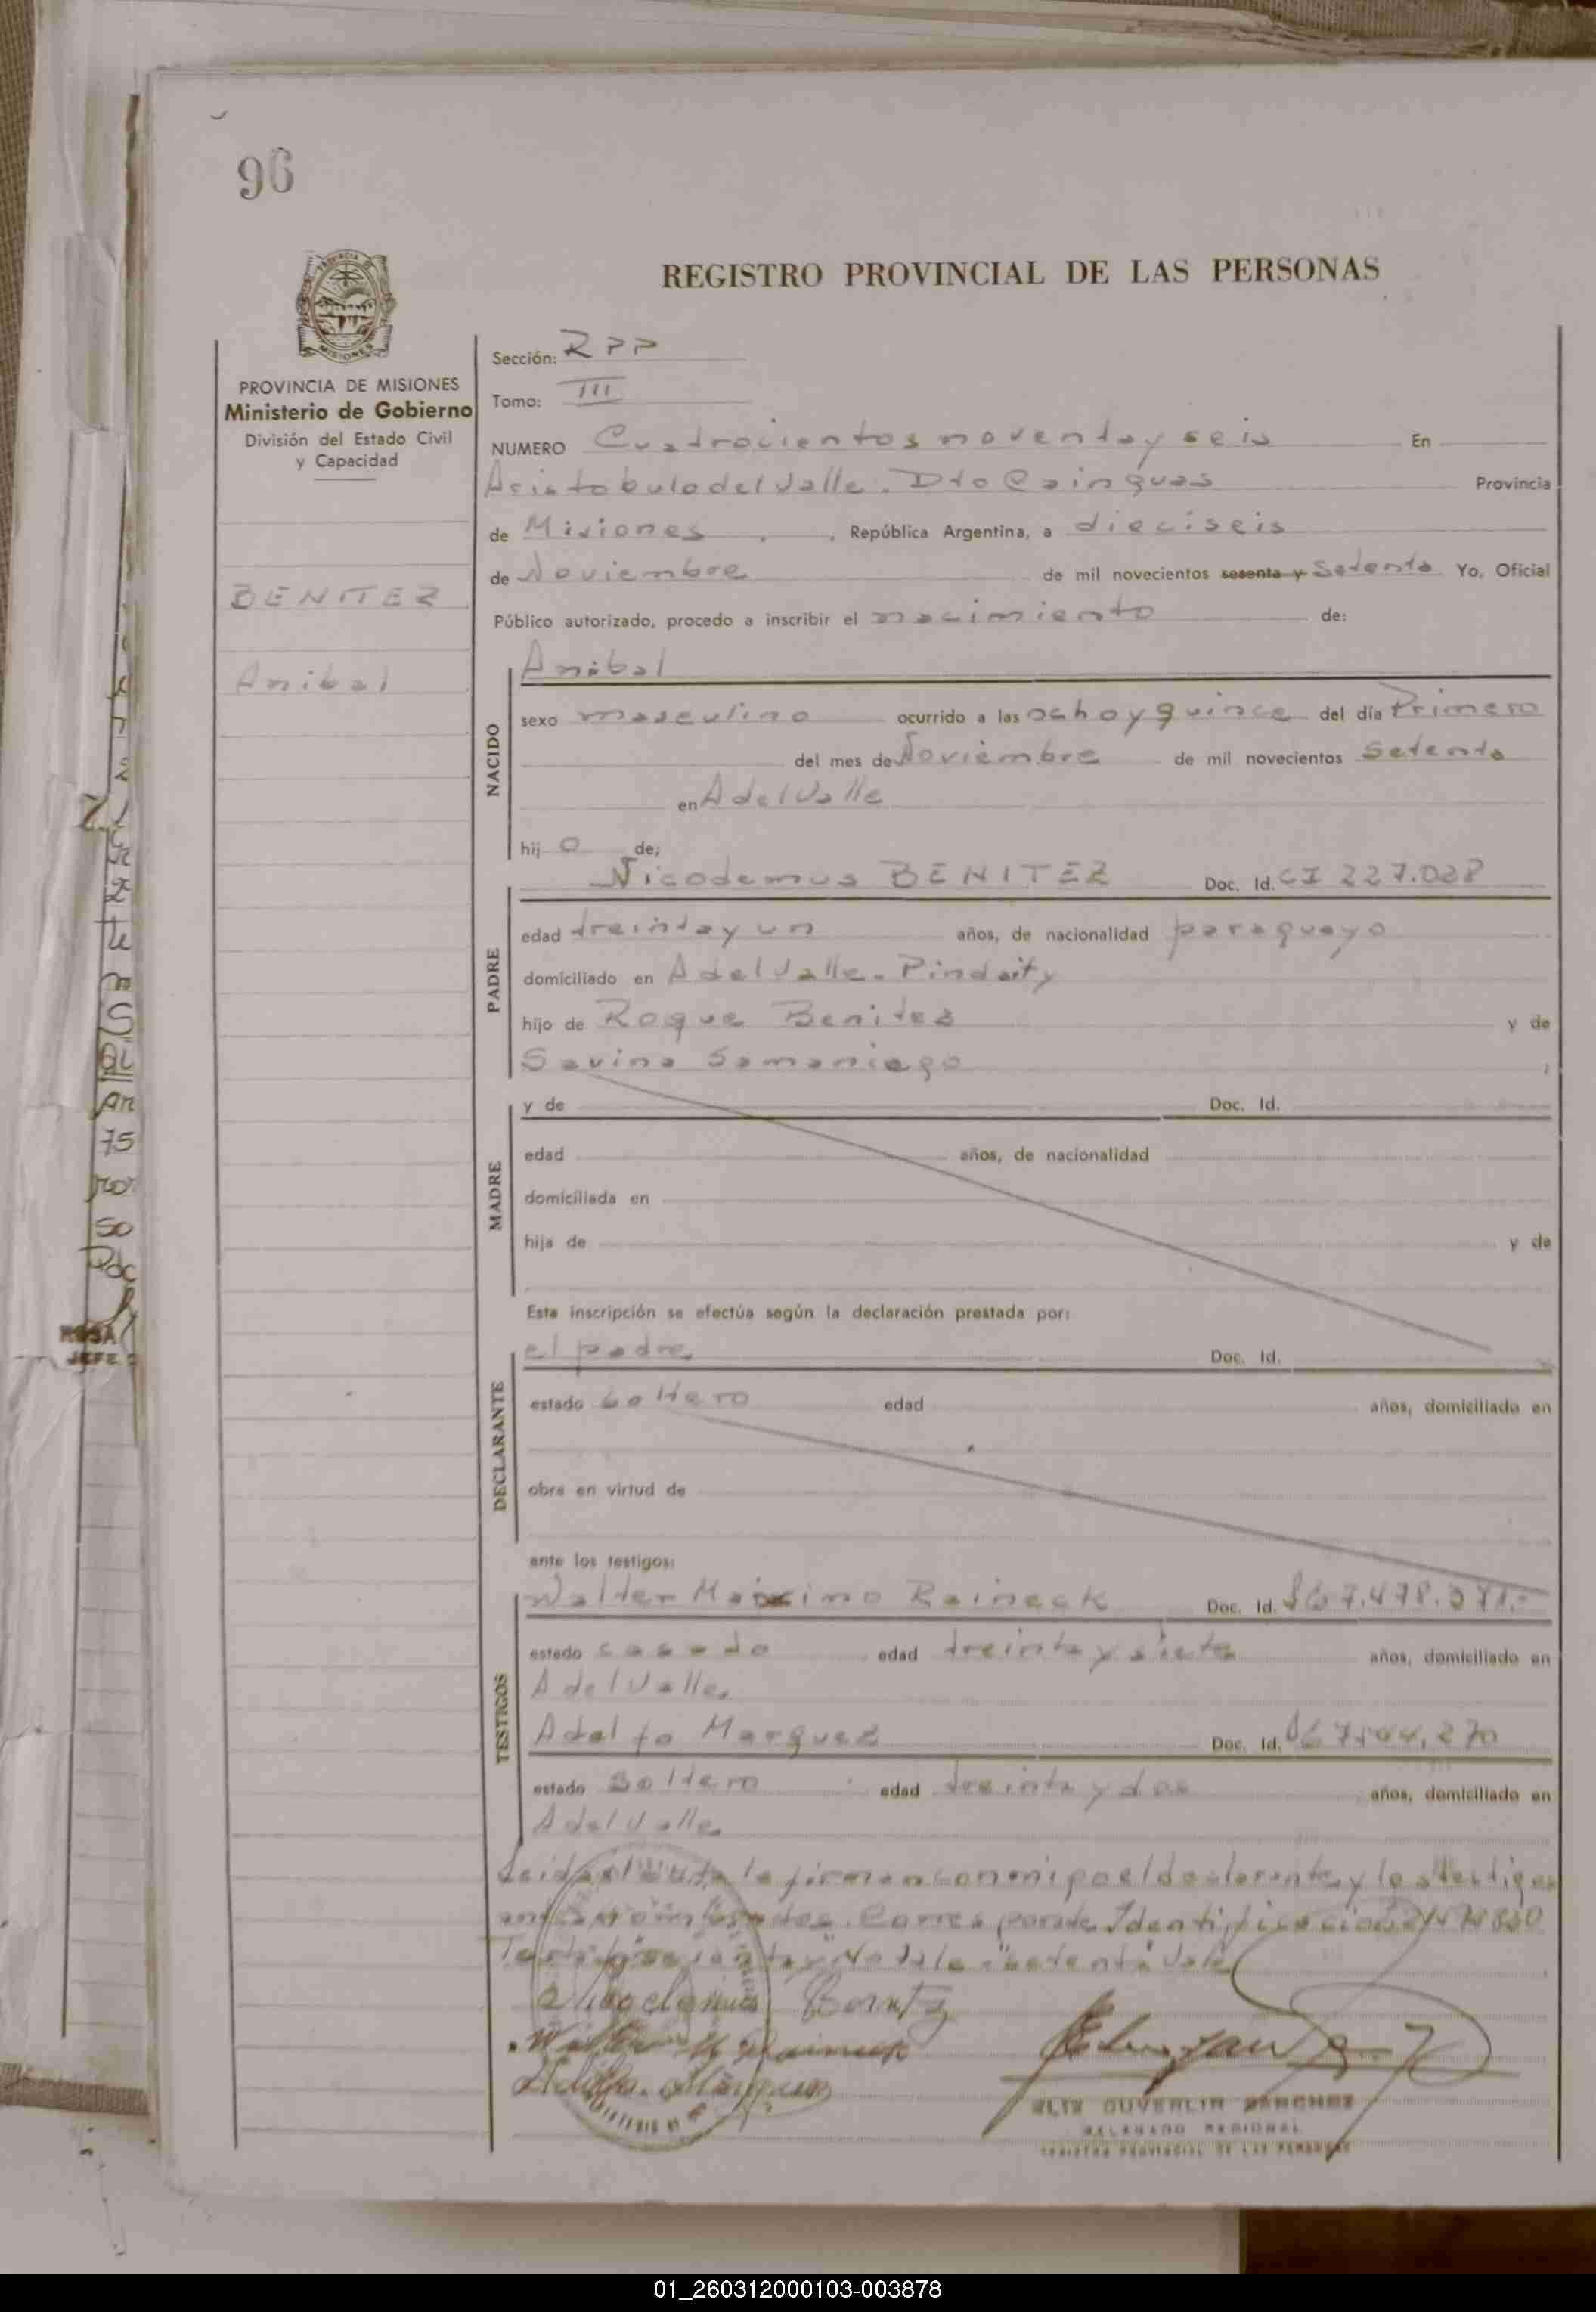 96
REGISTRO PROVINCIAL DE LAS PERSONAS
PROVINCIA DE MISIONES
MISIONES
PROVINCIA DE MISIONES
Ministerio de Gobierno
División del Estado Civil
y Capacidad
BENITEZ
Anibal
Sección: RPP
Tomo: III
NUMERO Cuatrocientos noventa y seis En
Aristobulo del Valle. Dto Cainguas Provincia
de Misiones , República Argentina, a dieciseis
de Noviembre de mil novecientos sesenta y Setenta Yo, Oficial
Público autorizado, procedo a inscribir el nacimiento de:
NACIDO
Anibal
sexo masculino ocurrido a las ocho y quince del día Primero
del mes de Noviembre de mil novecientos Setenta
en A del Valle
hij o de;
PADRE
Nicodemus BENITEZ Doc. Id. CI 227.028
edad treinta y un años, de nacionalidad paraguayo
domiciliado en A del Valle. Pindaity
hijo de Roque Benitez y de
Savina Samaniego ;
MADRE
y de Doc. Id.
edad años, de nacionalidad
domiciliada en
hija de y de
Esta inscripción se efectúa según la declaración prestada por:
DECLARANTE
el padre Doc. Id.
estado soltero edad años, domiciliado en
obra en virtud de
ante los testigos:
TESTIGOS
Walter Maximo Raineck Doc. Id.
estado casado edad treinta y siete años, domiciliado en
A del Valle
Adolfo Marquez Doc. Id.
estado Soltero edad treinta y dos años, domiciliado en
A del Valle
Leida el acta la firman conmigo el declarante y los testigos
Corresponde Identificacion
No Vale "setenta" Vale
Nicodemus Benitez
Walter M Raineck
Adolfo Marquez
SANCHEZ
DELEGADO REGIONAL
REGISTRO PROVINCIAL DE LAS PERSONAS
ROSA
JEFE
01_260312000103-003878